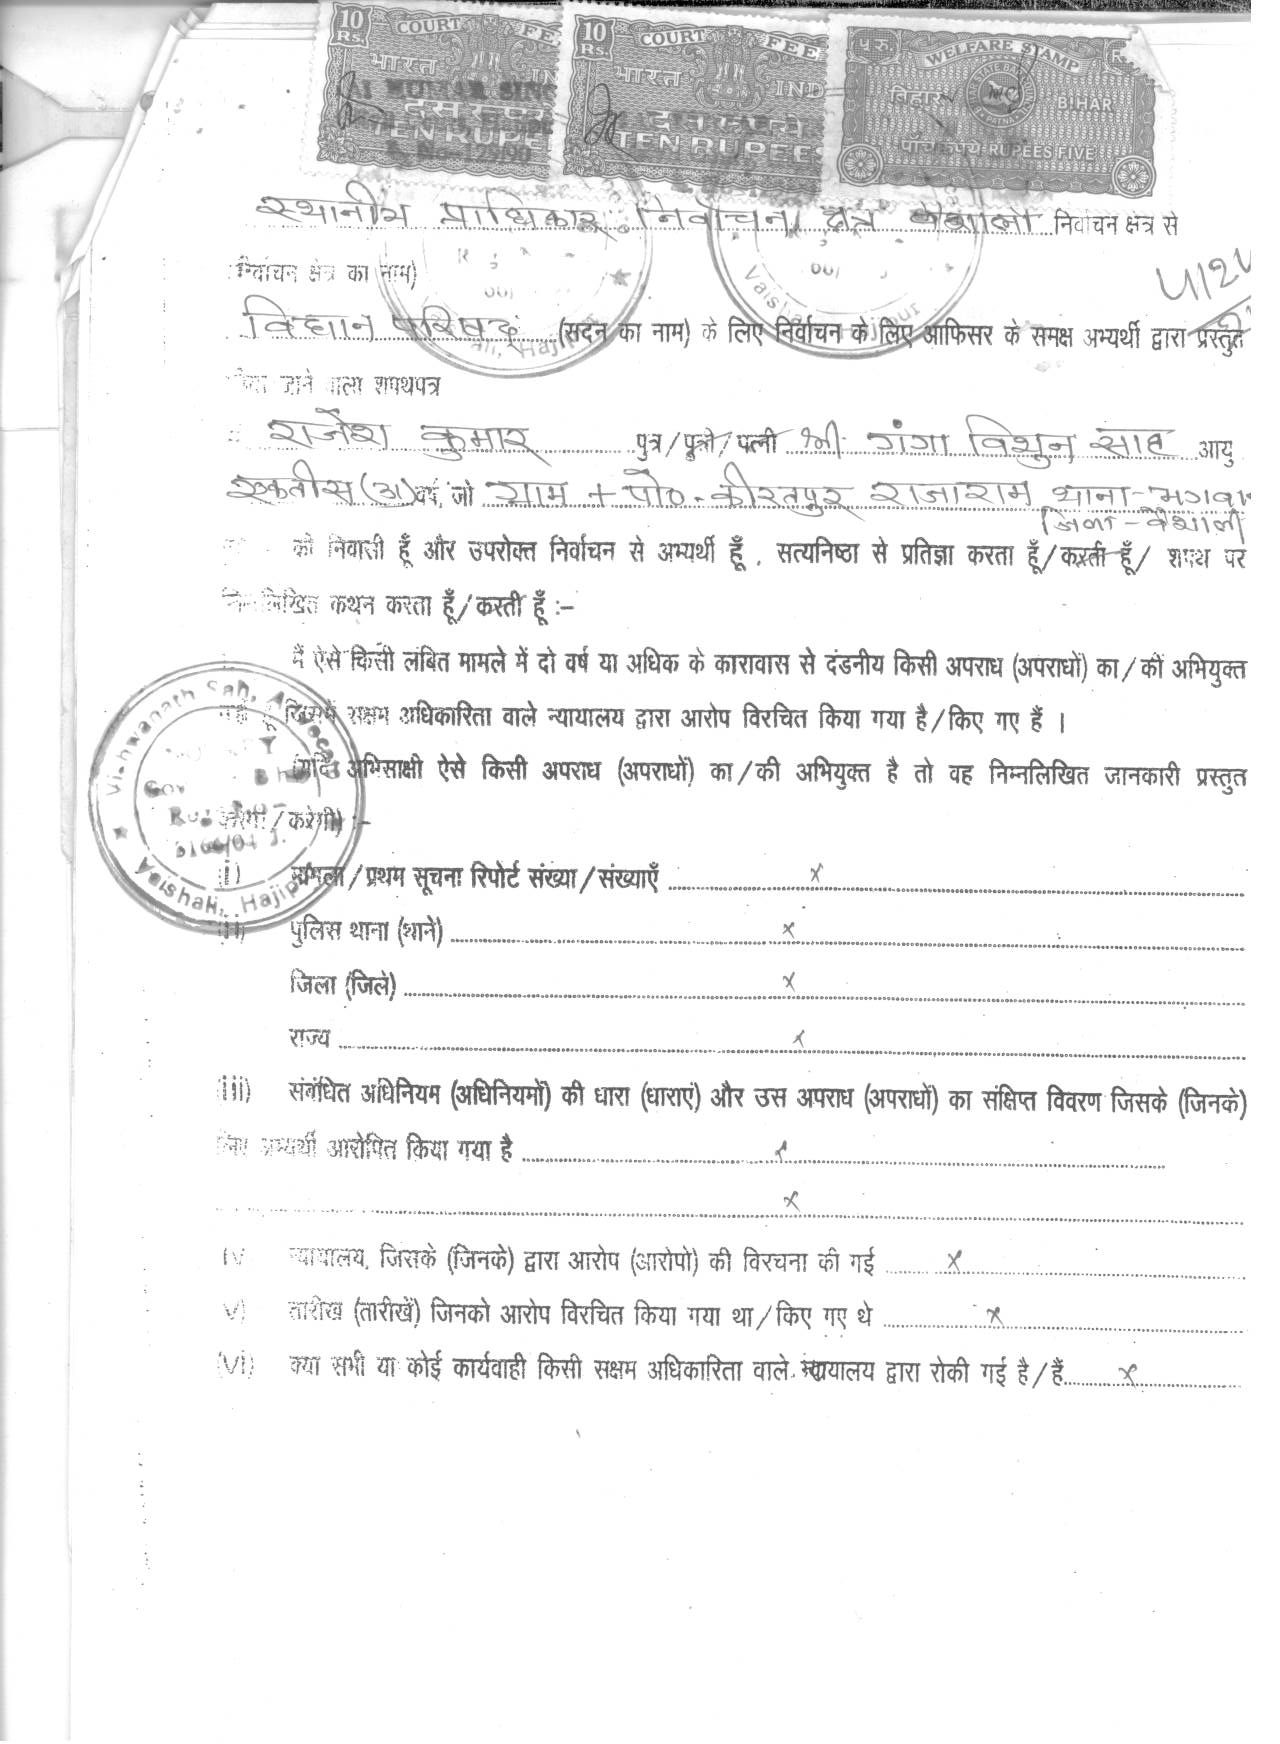 10 Rs. COURT FEE
भारत IND
AI KUMAR SING
दस रुपये
TEN RUPEE
10 Rs. COURT FEE
भारत IND
दस रुपये
TEN RUPEE
पं रु. WELFARE STAMP
बिहार BIHAR
पाँच रुपये RUPEES FIVE
स्थानीय प्राधिकार निर्वाचन क्षेत्र वैशाली निर्वाचन क्षेत्र से
निर्वाचन क्षेत्र का नाम)
विधान परिषद (सदन का नाम) के लिए निर्वाचन के लिए ऑफिसर के समक्ष अभ्यर्थी द्वारा प्रस्तुत
जाने वाला शपथपत्र
राजेश कुमार पुत्र/पुत्री/पत्नी श्री गंगा विशुन साह आयु
एकतीस (31) वर्ष, जो ग्राम + पो०- कीरतपुर राजाराम थाना-भगवा
जिला - वैशाली
की निवासी हूँ और उपरोक्त निर्वाचन से अभ्यर्थी हूँ, सत्यनिष्ठा से प्रतिज्ञा करता हूँ/करती हूँ/ शपथ पर
निम्नलिखित कथन करता हूँ/करती हूँ :-
मैं ऐसे किसी लंबित मामले में दो वर्ष या अधिक के कारावास से दंडनीय किसी अपराध (अपराधों) का/की अभियुक्त
नहीं हूँ जिसमें सक्षम अधिकारिता वाले न्यायालय द्वारा आरोप विरचित किया गया है/किए गए हैं ।
(यदि अभिसाक्षी ऐसे किसी अपराध (अपराधों) का/की अभियुक्त है तो वह निम्नलिखित जानकारी प्रस्तुत
करेगा/करेगी) :-
Vishwanath Sah, Advocate
Vaishali, Hajipur
(i) मामला/प्रथम सूचना रिपोर्ट संख्या/संख्याएँ x
(ii) पुलिस थाना (थाने) x
जिला (जिले) x
राज्य x
(iii) संबंधित अधिनियम (अधिनियमों) की धारा (धाराएं) और उस अपराध (अपराधों) का संक्षिप्त विवरण जिसके (जिनके)
लिए अभ्यर्थी आरोपित किया गया है x
x
iv न्यायालय, जिसके (जिनके) द्वारा आरोप (आरोपों) की विरचना की गई x
v) तारीख (तारीखें) जिनको आरोप विरचित किया गया था/किए गए थे x
(vi) क्या सभी या कोई कार्यवाही किसी सक्षम अधिकारिता वाले न्यायालय द्वारा रोकी गई है/हैं x